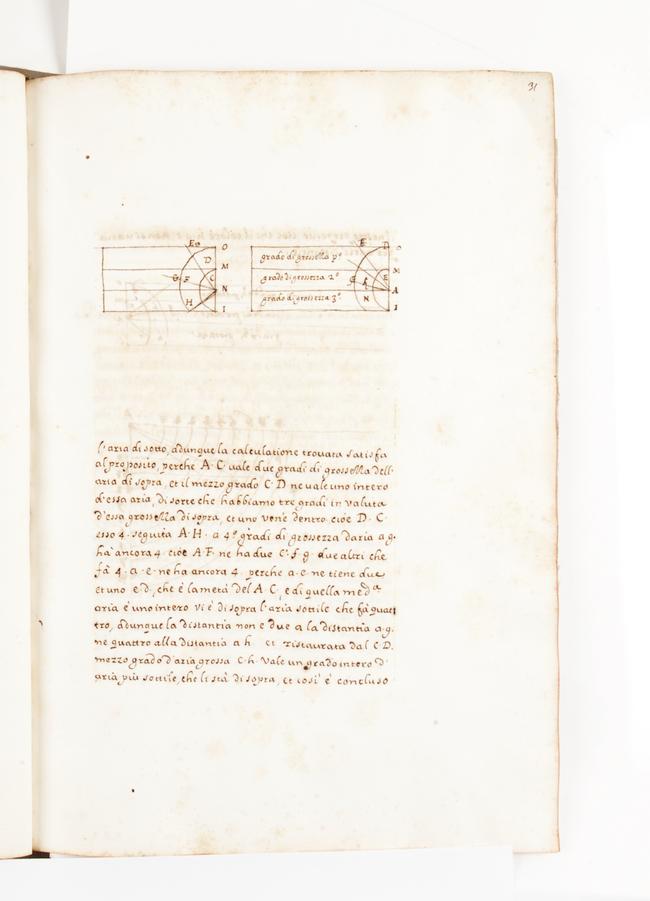 31
E O O
D M
G F C N
H I
E D O
grado di grossezza pº
M
grado di grossezza 2º
G A E A
grado di grossezza 3º
N I
l'aria di sotto, adunque la calculatione trovata satisfa
al proposito, perche A·C· vale due gradi di grossezza dell·
aria di sopra, et il mezzo grado C·D ne vale uno intero
d'essa aria, di sorte che habbiamo tre gradi in valuta
d'essa grossezza di sopra, et uno ven'è dentro cioè D·C·
esso 4· seguita A·H· a 4º gradi di grossezza d'aria a·g·
ha ancora 4· cioè A·F· ne ha due C·f·g· due altri che
fà 4· a·e· ne ha ancora 4· perche a·c· ne tiene due
et uno e·d·, che è la metà del A·C·, e di quella med.ª
aria è uno intero vi è di sopra l'aria sottile che fa quat
tro, adunque la distantia non è due a la distantia a·g·
ne quattro alla distantia a h· et ristaurata dal C·D·
mezzo grado d'aria grossa C·h· vale un grado intero d'
aria più sottile, che li stà di sopra, et così è concluso